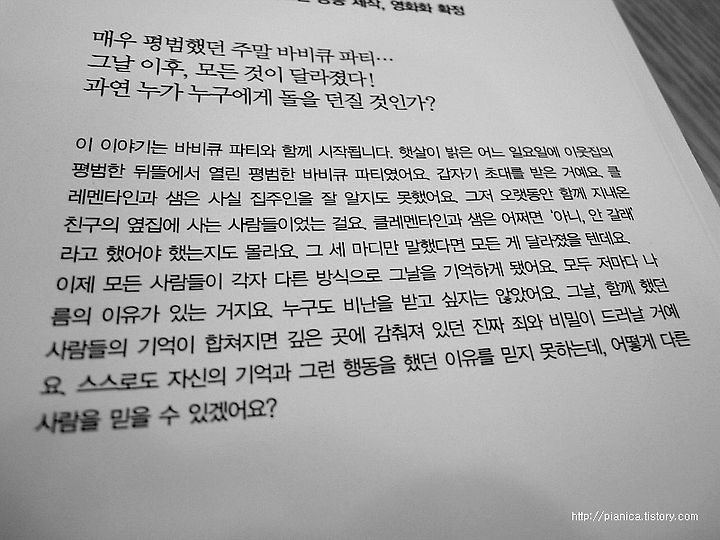 제작, 영화화 확정
매우 평범했던 주말 바비큐 파티…
그날 이후, 모든 것이 달라졌다!
과연 누가 누구에게 돌을 던질 것인가?
이 이야기는 바비큐 파티와 함께 시작됩니다. 햇살이 밝은 어느 일요일에 이웃집의
평범한 뒤뜰에서 열린 평범한 바비큐 파티였어요. 갑자기 초대를 받은 거예요. 클
레멘타인과 샘은 사실 집주인을 잘 알지도 못했어요. 그저 오랫동안 함께 지내온
친구의 옆집에 사는 사람들이었는 걸요. 클레멘타인과 샘은 어쩌면 '아니, 안 갈래'
라고 했어야 했는지도 몰라요. 그 세 마디만 말했다면 모든 게 달라졌을 텐데요.
이제 모든 사람들이 각자 다른 방식으로 그날을 기억하게 됐어요. 모두 저마다 나
름의 이유가 있는 거지요. 누구도 비난을 받고 싶지는 않았어요. 그날, 함께 했던
사람들의 기억이 합쳐지면 깊은 곳에 감춰져 있던 진짜 죄와 비밀이 드러날 거예
요. 스스로도 자신의 기억과 그런 행동을 했던 이유를 믿지 못하는데, 어떻게 다른
사람을 믿을 수 있겠어요?
http://pianica.tistory.com